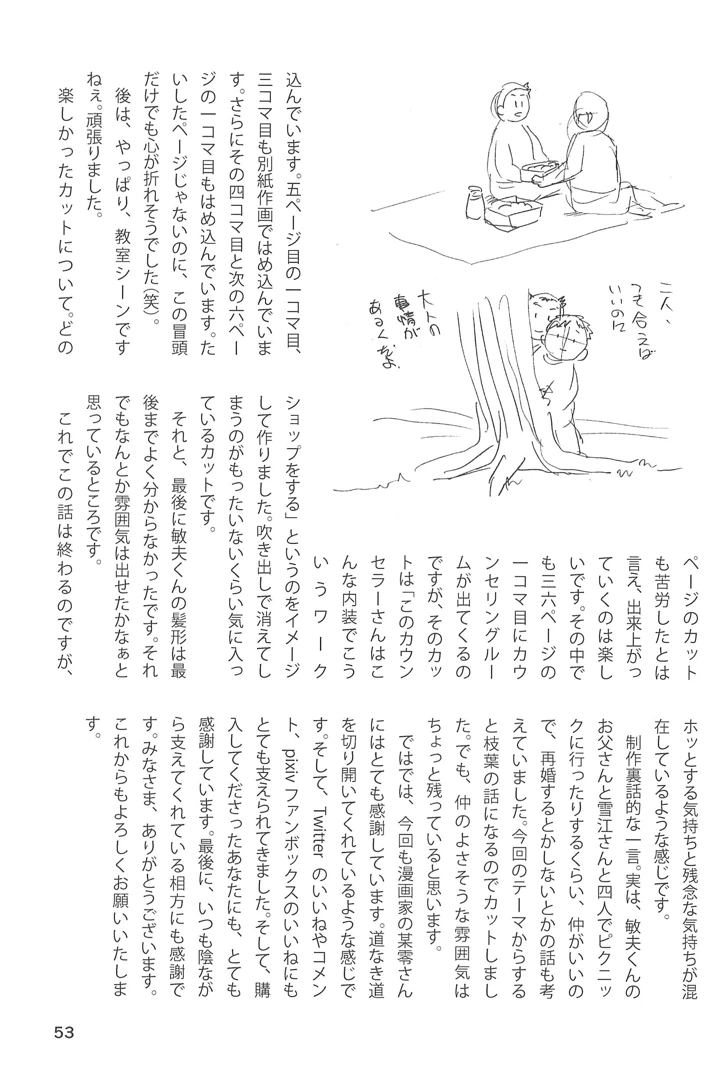 二人、
つき合えば
いいのに
大人の
事情が
あるんだよ
込んでいます。五ページ目の一コマ目、
三コマ目も別紙作画ではめ込んでいま
す。さらにその四コマ目と次の六ペー
ジの一コマ目もはめ込んでいます。た
いしたページじゃないのに、この冒頭
だけでも心が折れそうでした(笑)。
後は、やっぱり、教室シーンです
ねぇ。頑張りました。
楽しかったカットについて。どの
ページのカット
も苦労したとは
言え、出来上がっ
ていくのは楽し
いです。その中で
も三六ページの
一コマ目にカウ
ンセリングルー
ムが出てくるの
ですが、そのカッ
トは「このカウン
セラーさんはこ
んな内装でこう
いうワーク
ショップをする」というのをイメージ
して作りました。吹き出しで消えてし
まうのがもったいないくらい気に入っ
ているカットです。
それと、最後に敏夫くんの髪形は最
後までよく分からなかったです。それ
でもなんとか雰囲気は出せたかなぁと
思っているところです。
これでこの話は終わるのですが、
ホッとする気持ちと残念な気持ちが混
在しているような感じです。
制作裏話的な一言。実は、敏夫くんの
お父さんと雪江さんと四人でピクニッ
クに行ったりするくらい、仲がいいの
で、再婚するとかしないとかの話も考
えていました。今回のテーマからする
と枝葉の話になるのでカットしまし
た。でも、仲のよさそうな雰囲気は
ちょっと残っていると思います。
ではでは、今回も漫画家の某零さん
にはとても感謝しています。道なき道
を切り開いてくれているような感じで
す。そして、Twitterのいいねやコメン
ト、pixivファンボックスのいいねにも
とても支えられてきました。そして、購
入してくださったあなたにも、とても
感謝しています。最後に、いつも陰なが
ら支えてくれている相方にも感謝で
す。みなさま、ありがとうございます。
これからもよろしくお願いいたしま
す。
53